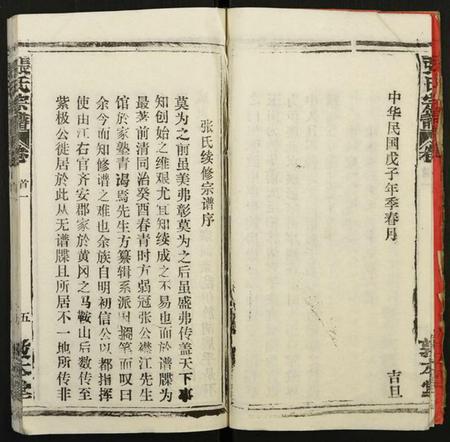 中华民国戊子年季春月
吉旦
張氏宗譜
卷
敦本堂
张氏续修宗谱序
莫为之前虽美弗彰莫为之后虽盛弗传盖天下事
知创始之维艰尤宜知续成之不易也而於谱牒为
最莠前清同治癸酉春青时方弱冠张公襟江先生
馆於家塾青谒焉先生方纂辑系派因搁笔而叹曰
余今而知修谱之难也余族自明初信公以都指挥
使由江右官齐安郡家於黄冈之马鞍山后数传至
紫极公徙居於此从无谱牒且所居不一地所传非
張氏宗譜
卷
首一
五
敦本堂